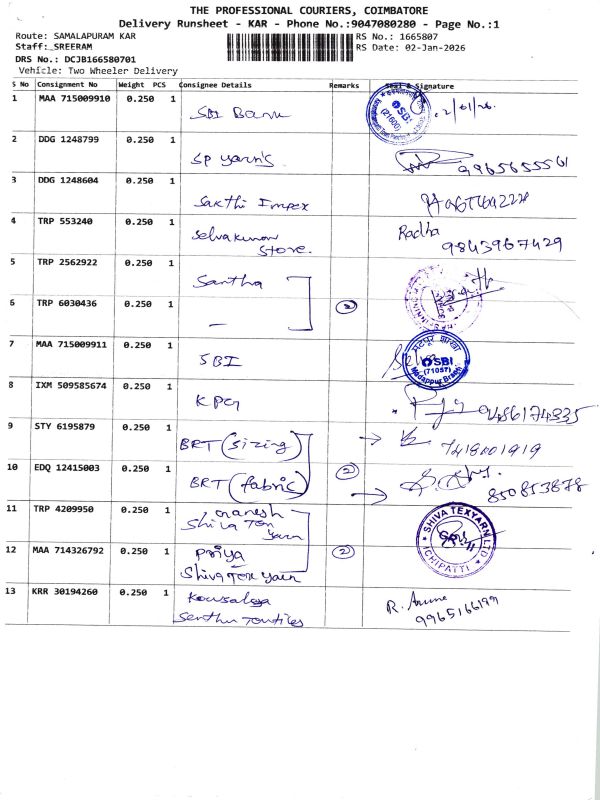 THE PROFESSIONAL COURIERS, COIMBATORE
Delivery Runsheet - KAR - Phone No.:9047080280 - Page No.:1
Route: SAMALAPURAM KAR
RS No.: 1665807
Staff: SREERAM
RS Date: 02-Jan-2026
DRS No.: DCJB166580701
Vehicle: Two Wheeler Delivery
S No Consignment No Weight PCS Consignee Details Remarks Seal & Signature
1 MAA 715009910 0.250 1 SBI Bank SBI (21600)
2 DDG 1248799 0.250 1 SP Yarn's 9965655561
3 DDG 1248604 0.250 1 Sakthi Impex
4 TRP 553240 0.250 1 Selvakumar Store. Radha 9843967429
5 TRP 2562922 0.250 1 Santha
6 TRP 6030436 0.250 1 — 2
7 MAA 715009911 0.250 1 SBI SBI (71057) Madappur Branch
8 IXM 509585674 0.250 1 KPG
9 STY 6195879 0.250 1 BRT (Sizing) → 7418001919
10 EDQ 12415003 0.250 1 BRT (fabric) 2 → 850853878
11 TRP 4209950 0.250 1 Shiva Tex Yarn SHIVA TEXYARN LTD ICHIPATTI
12 MAA 714326792 0.250 1 Priya Shiva Tex Yarn 2
13 KRR 30194260 0.250 1 Kousalya R. 9965166199